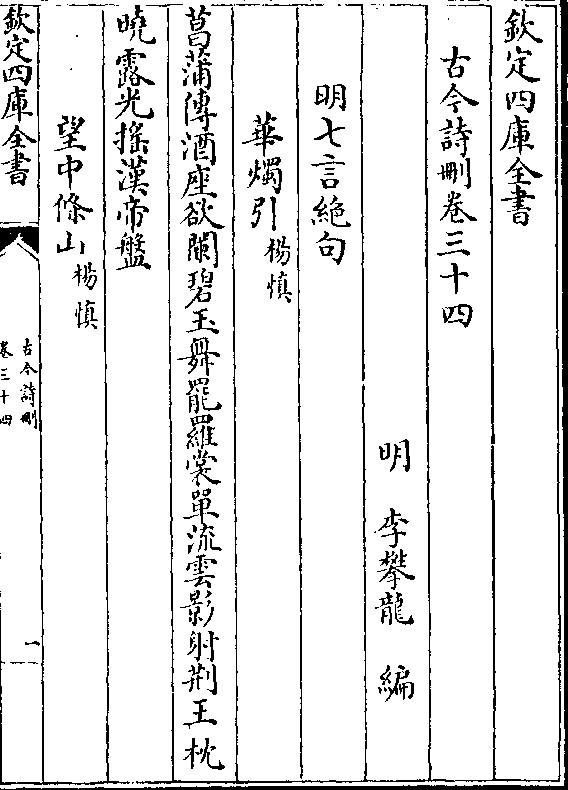 欽定四庫全書
古今詩刪卷三十四
明 李攀龍 編
明七言絕句
華燭引楊慎
菖蒲傳酒座欲闌碧玉舞罷羅裳單流雲影射荆王枕
曉露光搖漢帝盤
望中條山楊慎
欽定四庫全書
古今詩刪
卷三十四
一